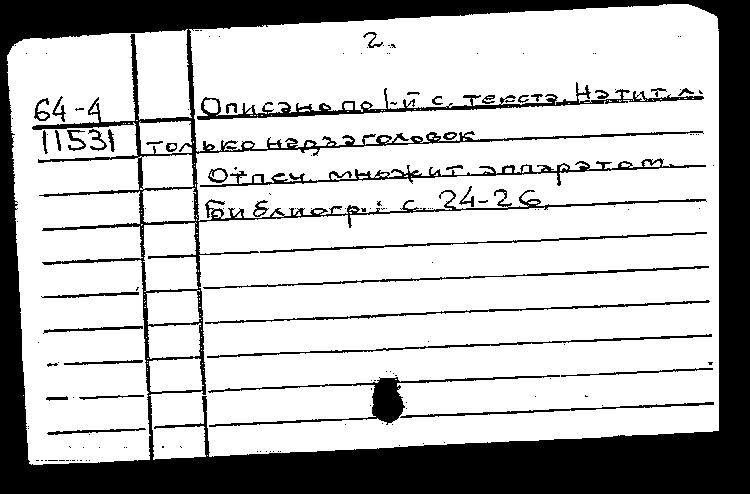 2.
64-4 Описано по 1-й с. текста. На тит. л.
11531 только надзаголовок
Отпеч. множит. аппаратом.
Библиогр.: с. 24-26.